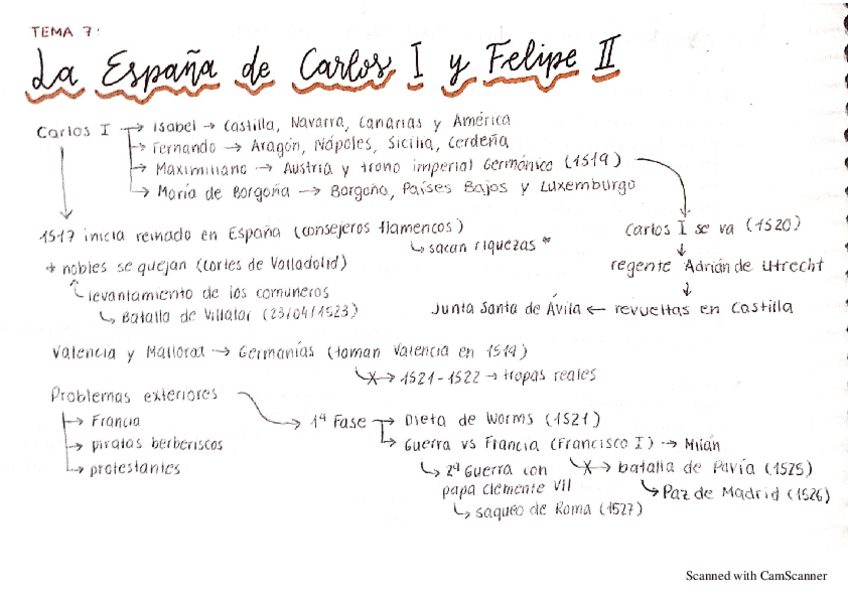 TEMA 7:
La España de Carlos I y Felipe II
Carlos I → Isabel → Castilla, Navarra, Canarias y América
→ Fernando → Aragón, Nápoles, Sicilia, Cerdeña
→ Maximiliano → Austria y trono imperial Germánico (1519)
→ María de Borgoña → Borgoña, Países Bajos y Luxemburgo
1517 inicia reinado en España (consejeros flamencos)
↳ sacan riquezas *
Carlos I se va (1520)
↓
regente Adrián de Utrecht
↓
Junta Santa de Ávila ← revueltas en Castilla
* nobles se quejan (Cortes de Valladolid)
levantamiento de los comuneros
↳ Batalla de Villalar (23/04/1523)
Valencia y Mallorca → Germanías (toman Valencia en 1519)
↳ X → 1521-1522 → tropas reales
Problemas exteriores
→ Francia
→ piratas berberiscos
→ protestantes
→ 1ª Fase → Dieta de Worms (1521)
↳ Guerra vs Francia (Francisco I) → Milán
↳ X → batalla de Pavía (1525)
↳ Paz de Madrid (1526)
↳ 2ª Guerra con
papa Clemente VII
↳ saqueo de Roma (1527)
Scanned with CamScanner